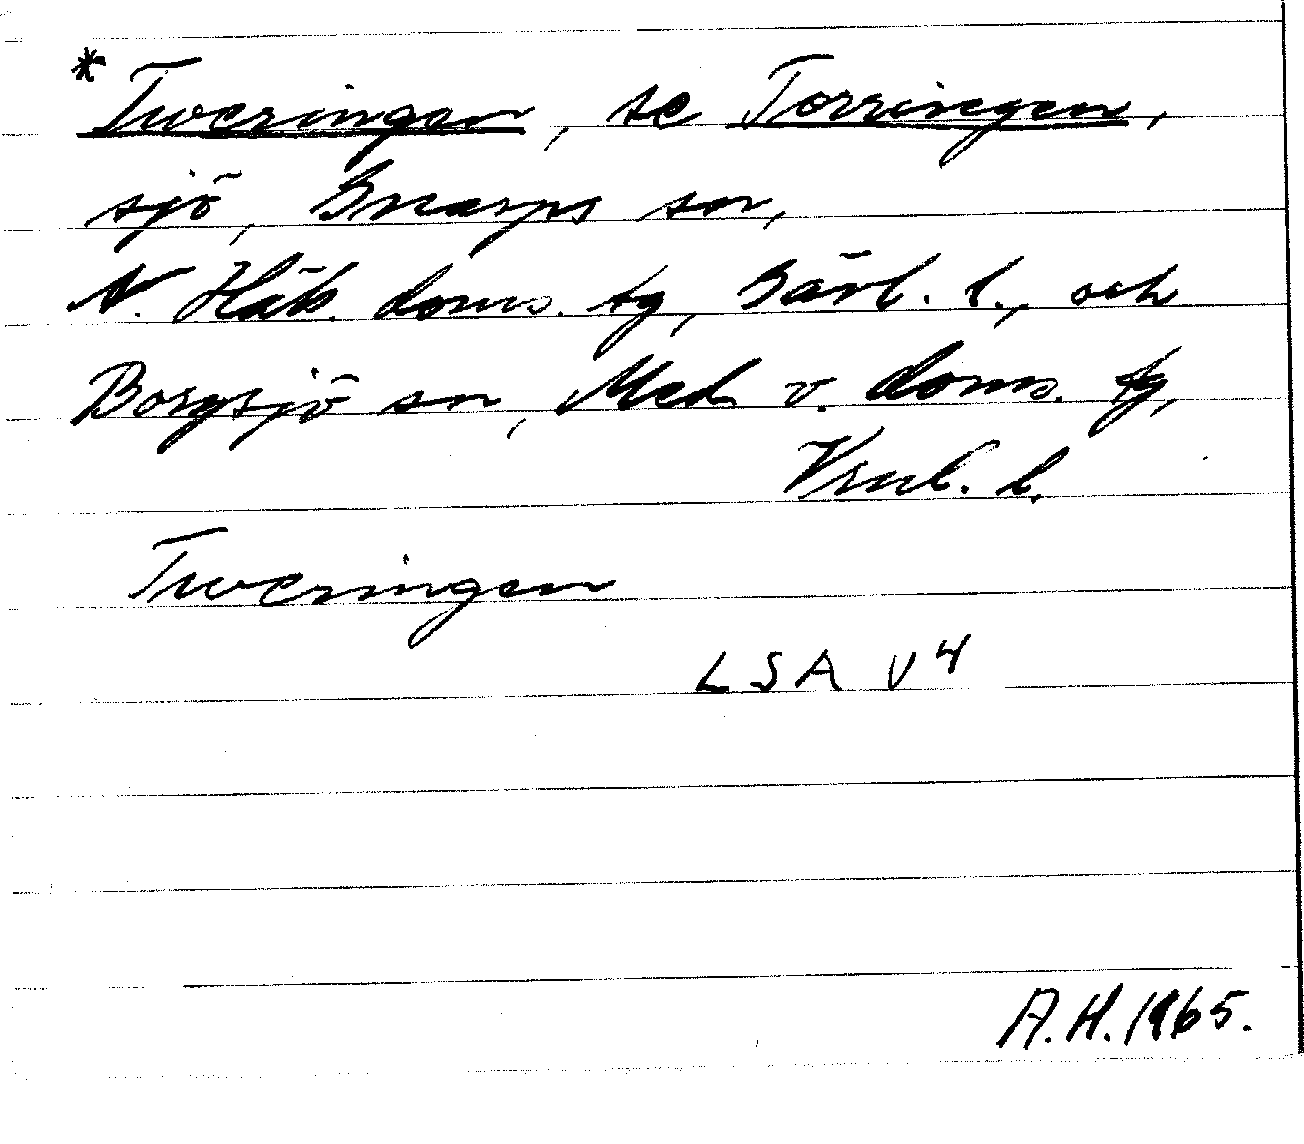 * Tweringen, se Torringen,
sjö, Gnarps sn,
N. Häls. doms. tg, Gävl. l., och
Borgsjö sn, Med. v. doms. tg,
Vrnl. l.
Tweringen
LSA V 4
A.H. 1965.